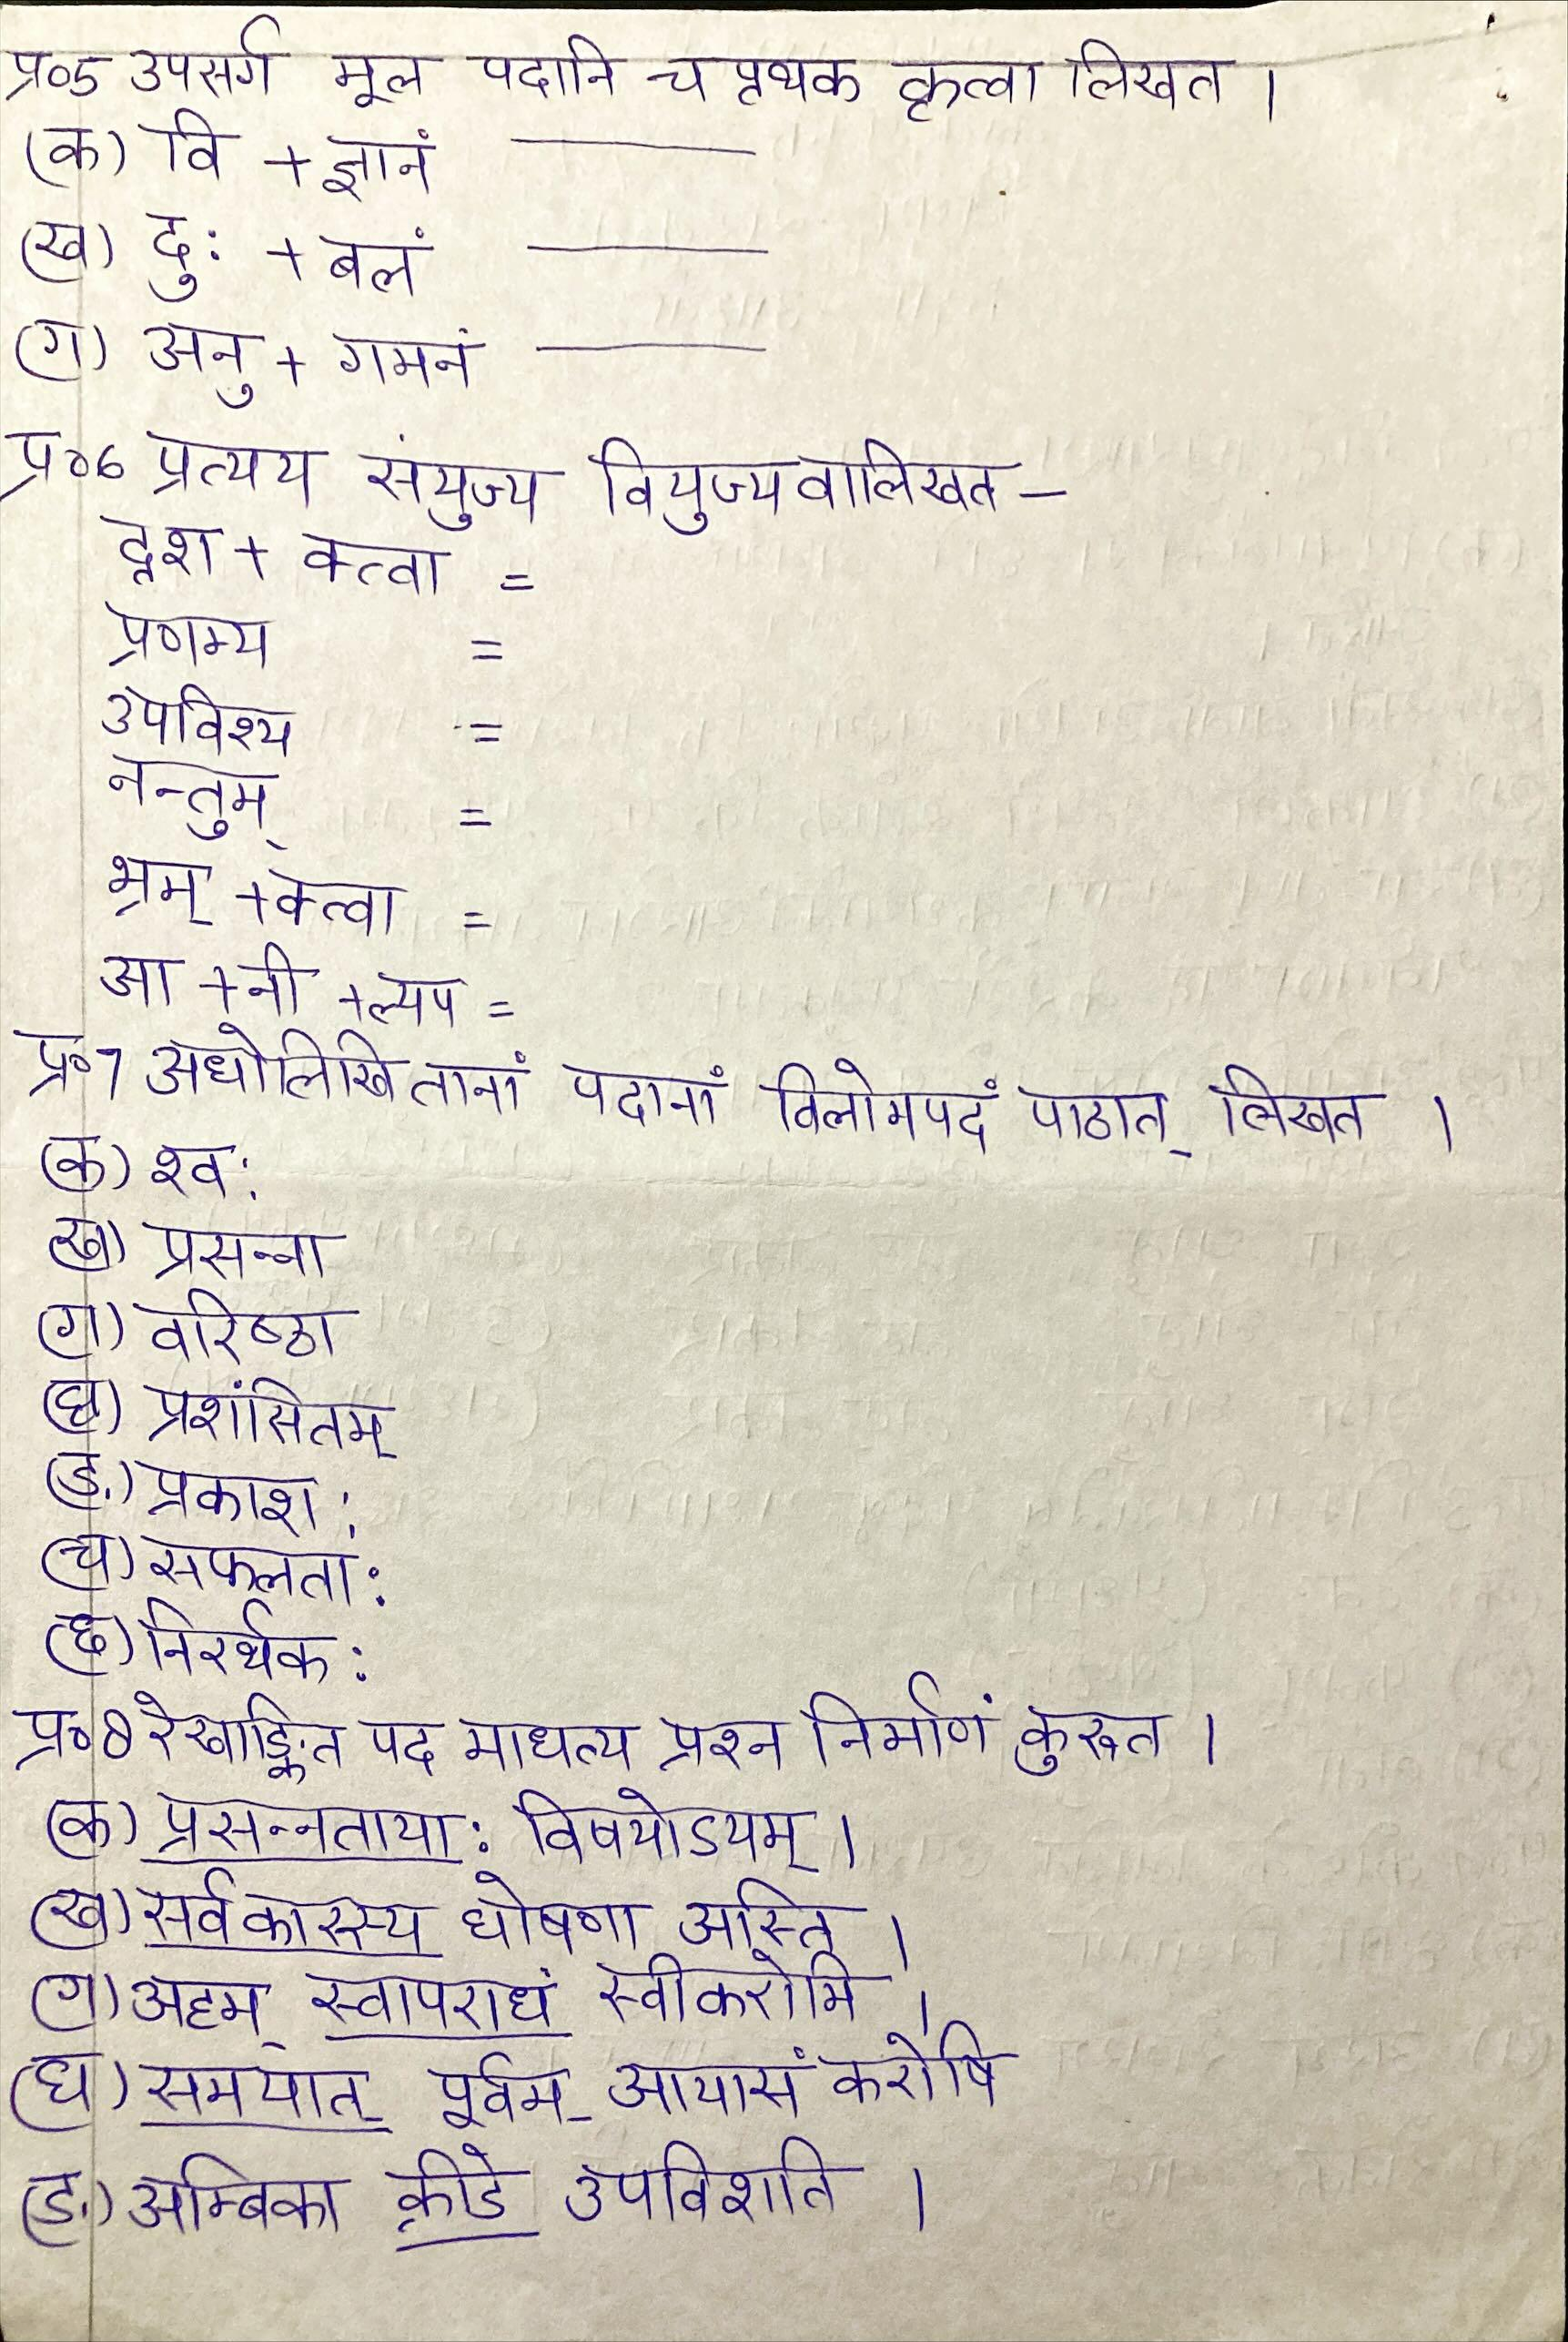 प्र०5 उपसर्ग मूल पदानि च पृथक कृत्वा लिखत ।
(क) वि + ज्ञानं ———
(ख) दु: + बलं ———
(ग) अनु + गमनं ———
प्र०6 प्रत्यय संयुज्य वियुज्यवालिखत –
दृश + क्त्वा =
प्रणम्य =
उपविश्य =
नन्तुम् =
भ्रम् + क्त्वा =
आ + नी + ल्यप =
प्र०7 अधोलिखितानां पदानां विलोमपदं पाठात् लिखत ।
(क) श्व:
(ख) प्रसन्ना
(ग) वरिष्ठा
(घ) प्रशंसितम्
(ड.) प्रकाश:
(च) सफलता:
(छ) निरर्थक:
प्र०8 रेखाङ्कित पद माधत्य प्रश्न निर्माणं कुरूत ।
(क) प्रसन्नताया: विषयोऽयम् ।
(ख) सर्वकारस्य घोषणा अस्ति ।
(ग) अहम् स्वापराधं स्वीकरोमि ।
(घ) समयात् पूर्वम् आयासं करोषि
(ड.) अम्बिका क्रीडे उपविशति ।